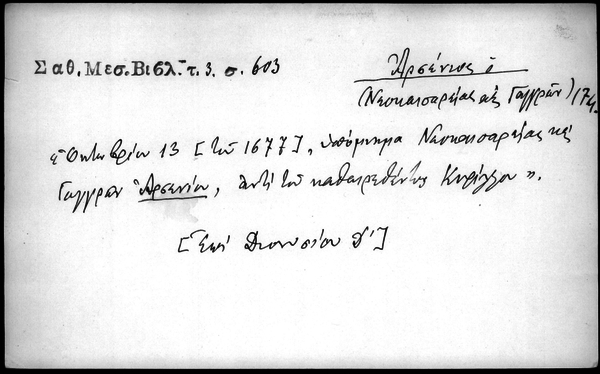 Σαθ. Μεσ. Βιβλ. τ. 3. σ. 603
Ἀρσένιος ὁ
(Νεοκαισαρείας καὶ Γαγγρῶν) 174.
«Ὀκτωβρίου 13 [τοῦ 1677], ὑπόμνημα Νεοκαισαρείας καὶ
Γαγγρῶν Ἀρσενίου, ἀντὶ τοῦ καθαιρεθέντος Κυρίλλου».
[Ἐπὶ Διονυσίου Δ΄]